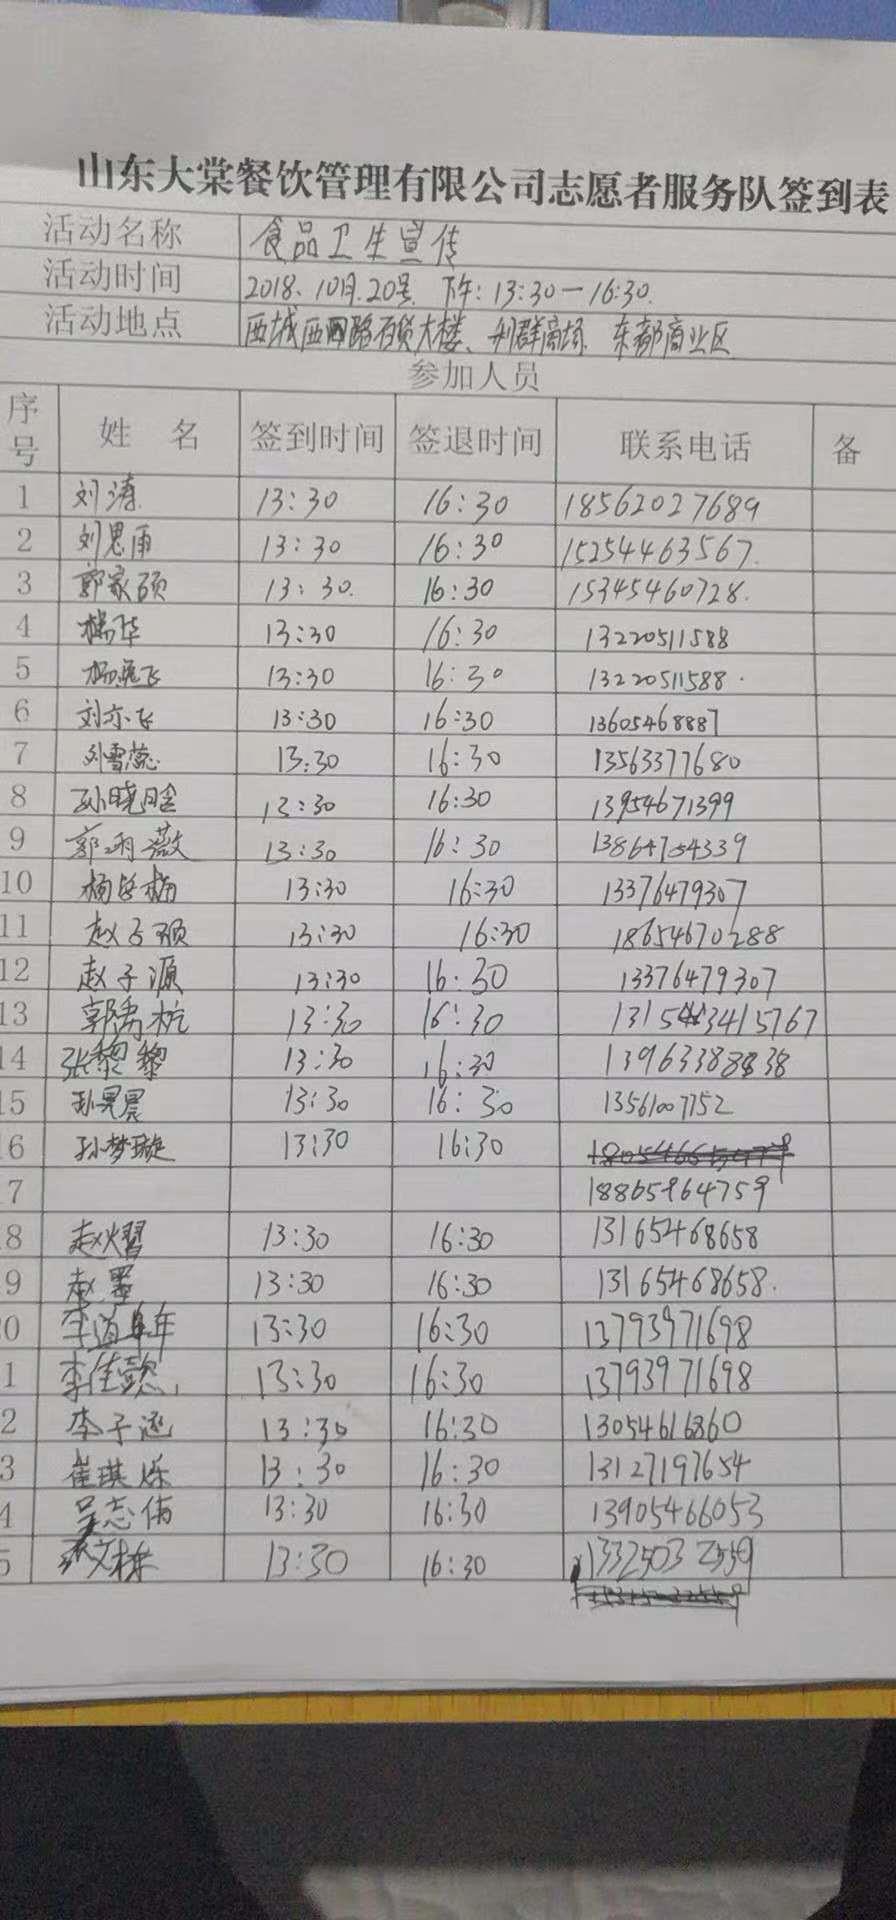 山东大棠餐饮管理有限公司志愿者服务队签到表
活动名称 食品卫生宣传
活动时间 2018.10月.20号 下午:13:30—16:30.
活动地点 西城西四路百货大楼、利群商场、东都商业区
参加人员
序号 姓 名 签到时间 签退时间 联系电话 备
1 刘涛 13:30 16:30 18562027689
2 刘思雨 13:30 16:30 15254463567.
3 郭家硕 13:30. 16:30 15345460728.
4 杨华 13:30 16:30 13220511588
5 杨逸飞 13:30 16:30 13220511588.
6 刘亦飞 13:30 16:30 13605468887
7 刘雪蕊 13:30 16:30 13563377680
8 孙晓晗 13:30 16:30 13954671399
9 郭雨薇 13:30 16:30 13864754339
10 杨 梅 13:30 16:30 13376479307
11 赵子硕 13:30 16:30 18654670288
12 赵子源 13:30 16:30 13376479307
13 郭禹杭 13:30 16:30 1315 3415767
14 张黎黎 13:30 16:30 13963388838
15 孙昊晨 13:30 16:30 13561007752
6 孙梦璇 13:30 16:30
7 18865964759
8 赵熠 13:30 16:30 13165468658
9 赵墨 13:30 16:30 13165468658.
0 李道 年 13:30 16:30 13793971698
1 李佳懿 13:30 16:30 13793971698
2 李子涵 13:30 16:30 13054616860
3 崔琪烁 13:30 16:30 13127197654
4 吴志伟 13:30 16:30 13905466053
5 张文栋 13:30 16:30 13325032559